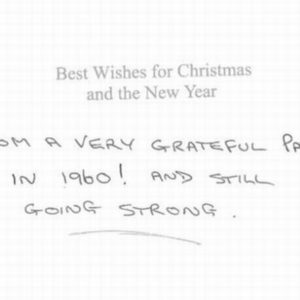 Best Wishes for Christmas
and the New Year
A VERY GRATEFUL
IN 1960! AND STILL
GOING STRONG.